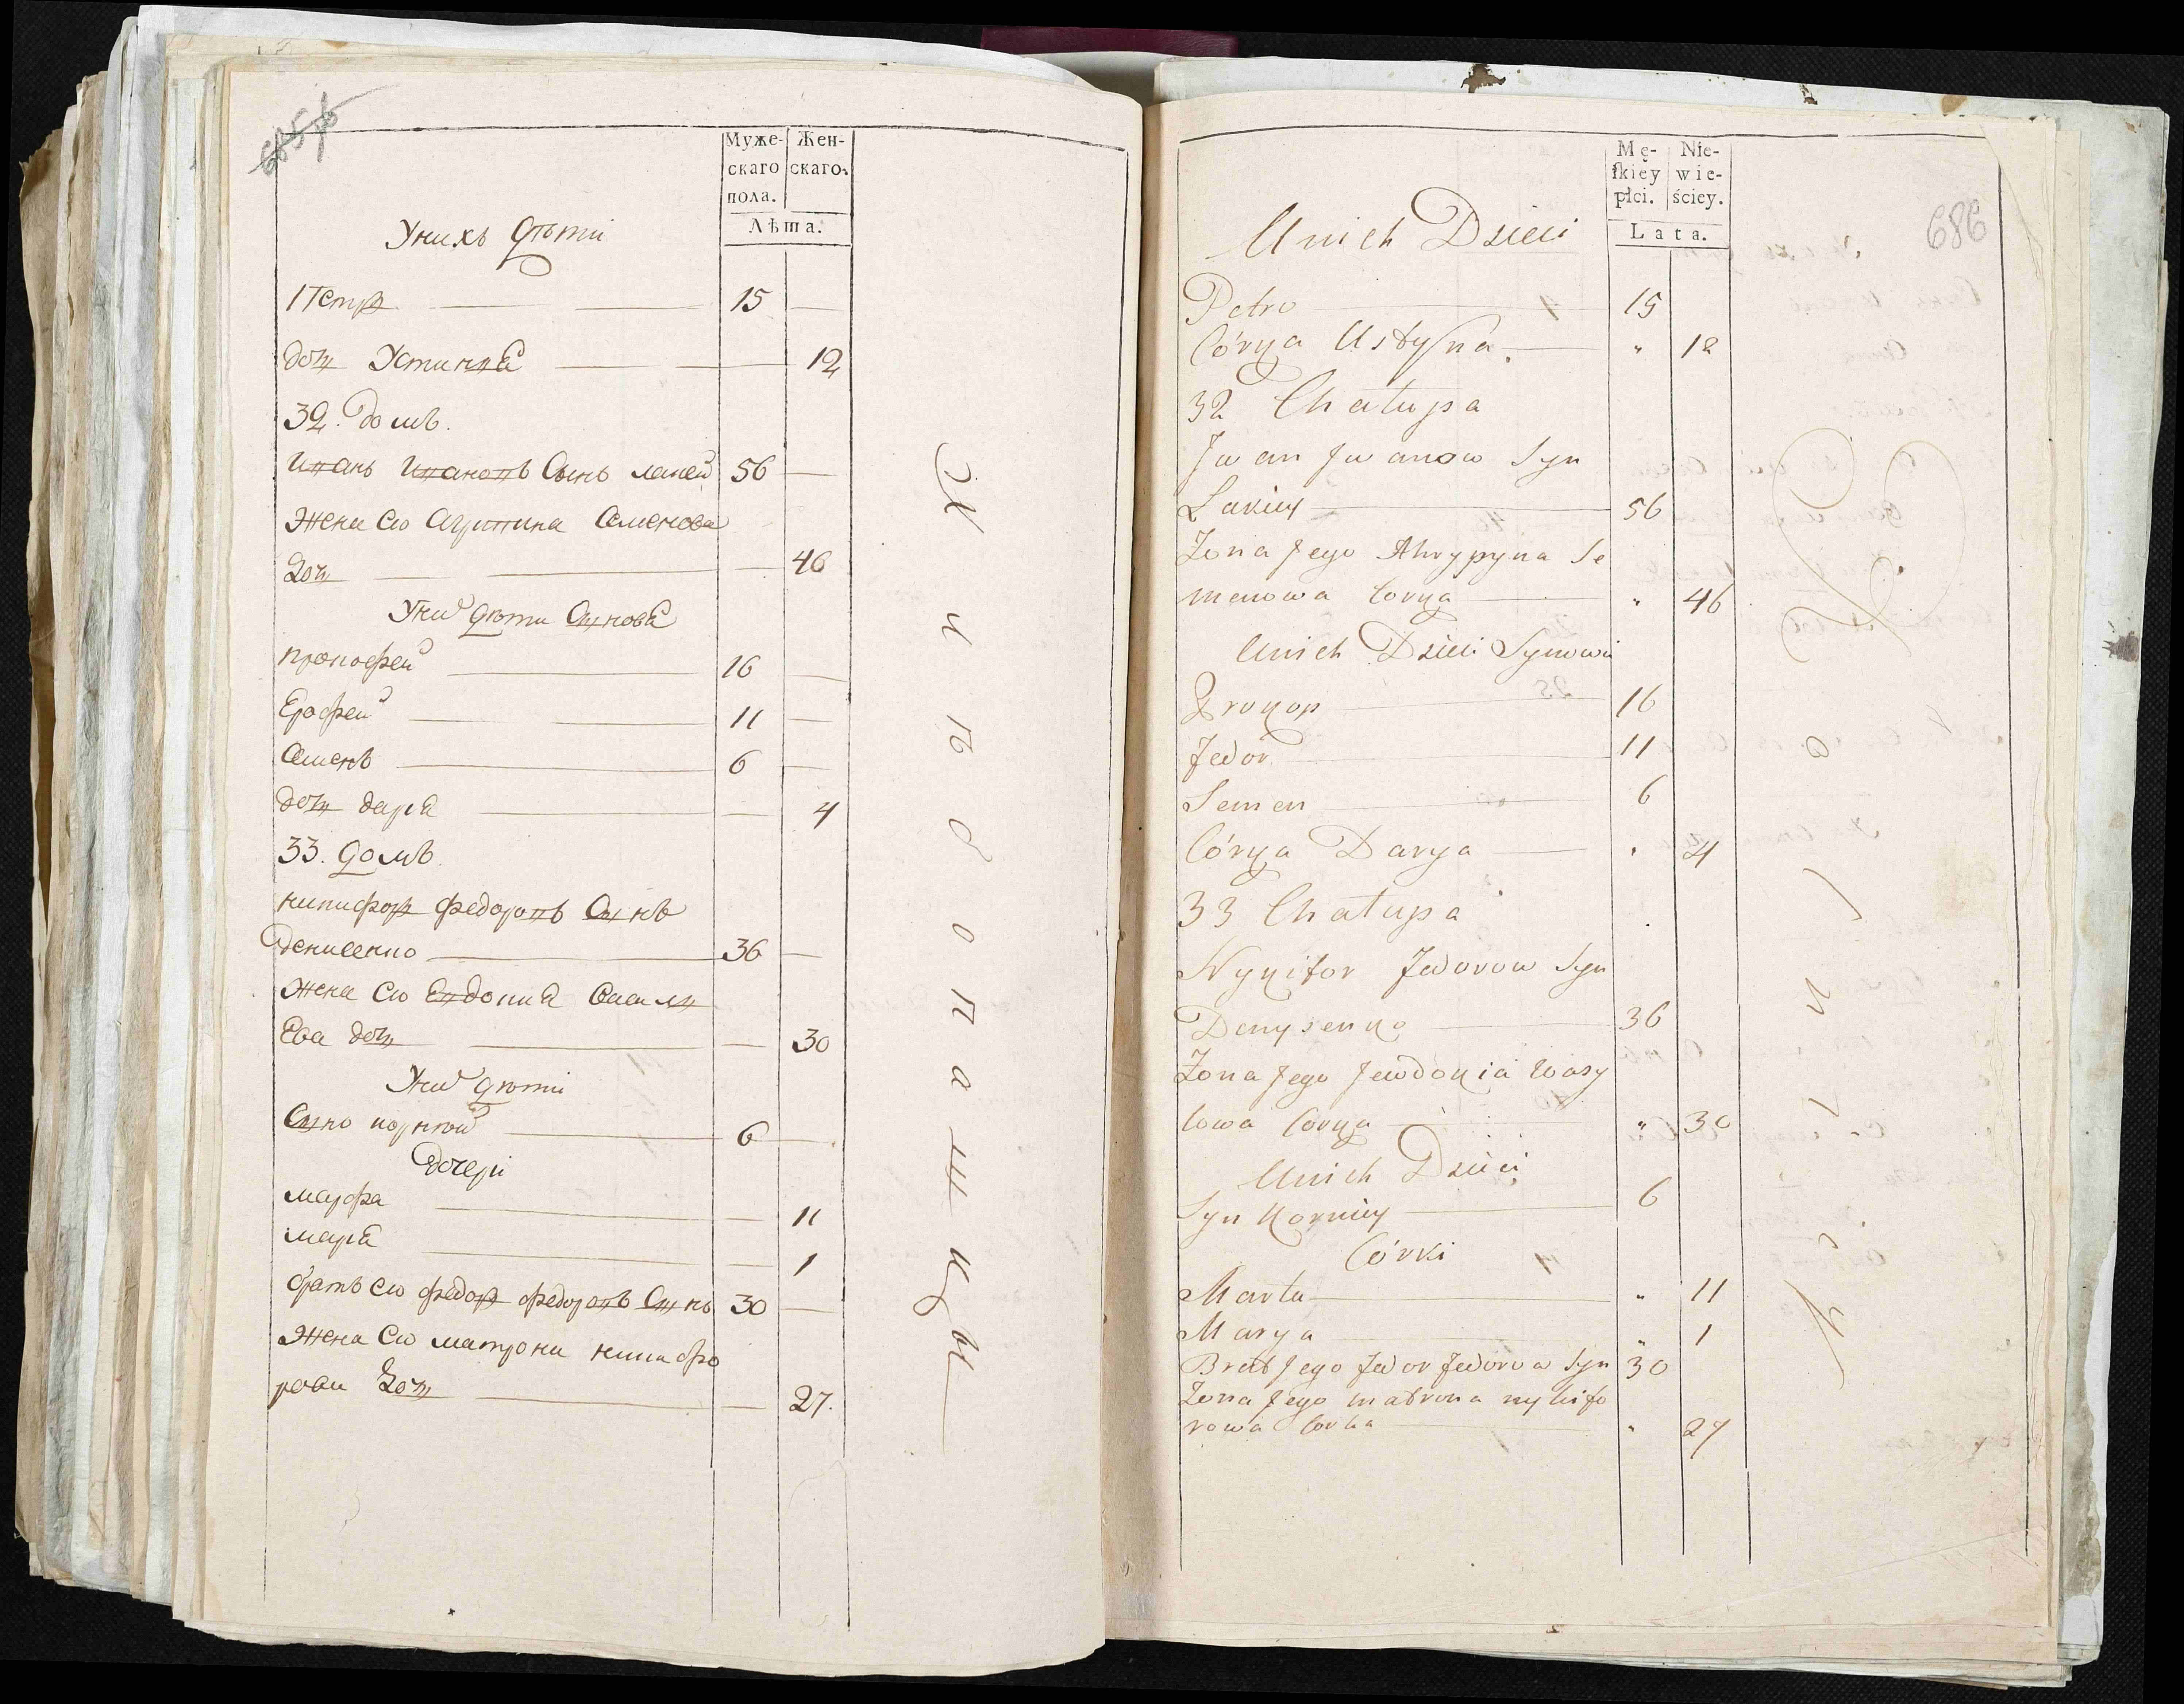 685об
Муже-
скаго
пола.
Жен-
скаго.
Лѣта.
Унихъ Дѣти
Петръ 15 —
дочь Устинія — 12
32. домъ.
Иванъ Ивановъ Сынъ лакей 56 —
Жена Его Агрипина Семенова
Дочь — 46
Уних Дѣти Сыновя
прокофей 16 —
Ерофей 11 —
Семенъ 6 —
дочь дарія — 4
33. домъ
никифоръ федоровъ Сынъ
денисенко 36 —
Жена Его Евдокия Васили
Ева дочь — 30
Уних дѣти
Сынъ корней 6 —
дочери
марфа — 11
марія — 1
братъ Его федоръ федоровъ Сынъ 30 —
Жена Его матрона никифо
рова Дочь — 27.
686
Mę-
skiey
płci.
Nie-
wie-
ściey.
Lata.
Unich Dzieci
Petro 15
Córka Ustyna " 12
32 Chałupa
Jwan Jwanow Syn
Łakiey 56
Zona Jego Ahrypyna Se
menowa Corka " 46
Unich Dzieci Synowie
Prokop 16
Jedor 11
Semen 6
Córka Darya " 4
33 Chałupa
Nykifor Fedorow Syn
Denysenko 36
Zona Jego Jewdokia Wasy
lowa Corka " 30
Unich Dzieci
Syn Korniey 6
Córki
Marta " 11
Marya " 1
Brat Jego Fedor Fedorow Syn 30
Zona Jego matrona nykifo
rowa Corka " 27